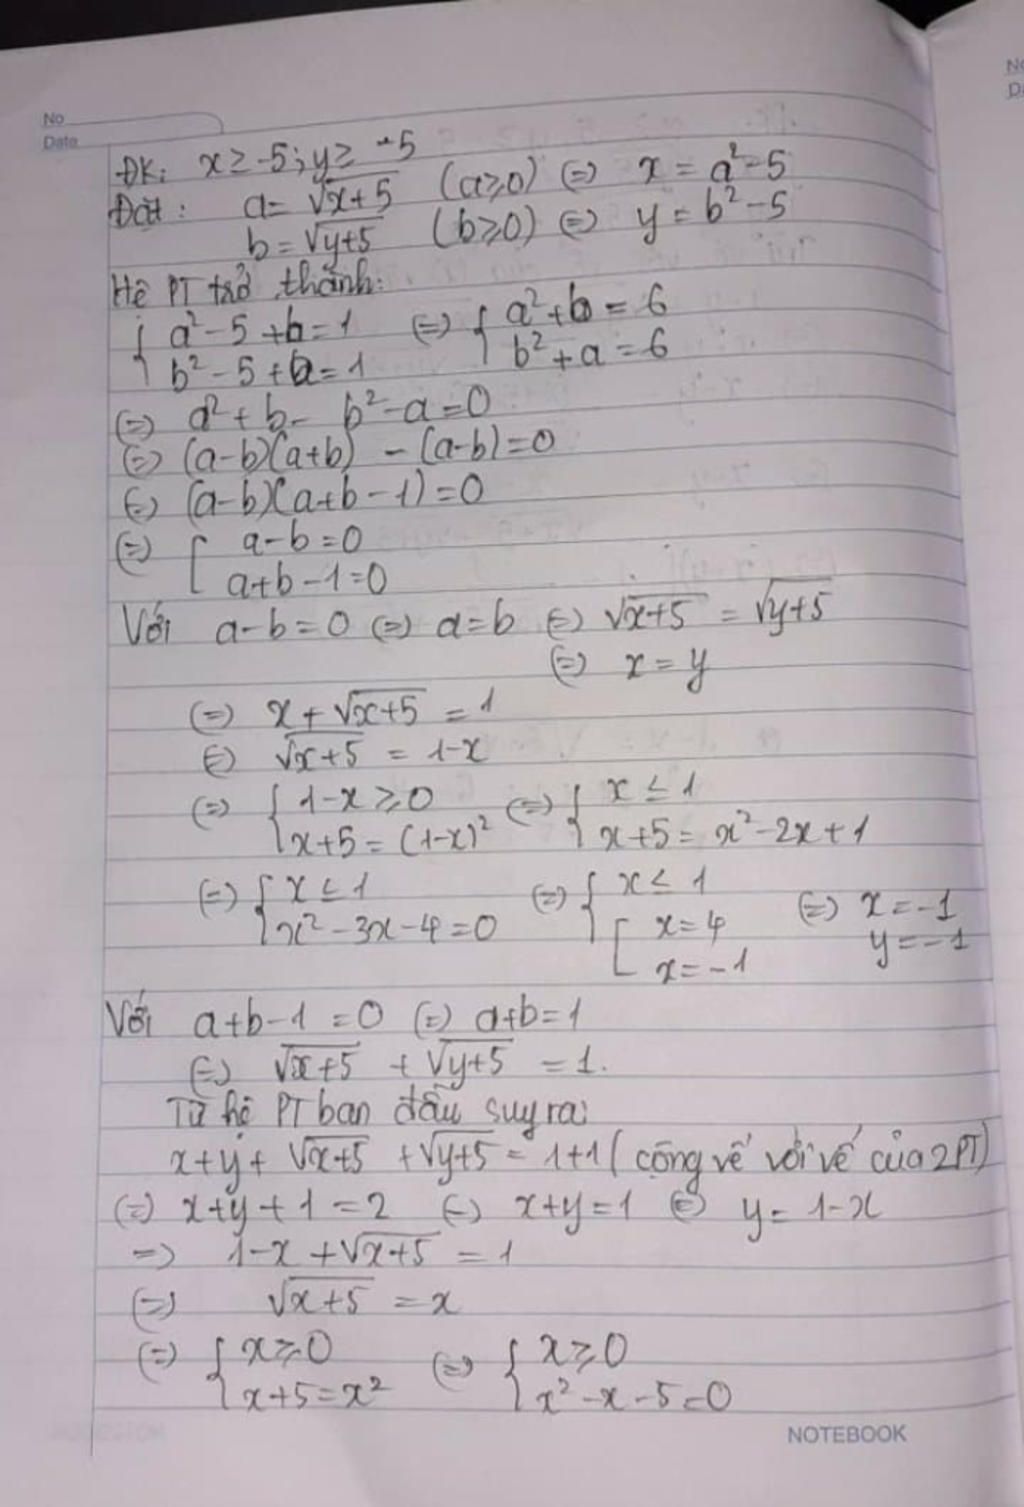 No
Date
ĐK: x ≥ -5; y ≥ -5
Đặt: a = √(x+5) (a ≥ 0) (=) x = a² - 5
b = √(y+5) (b ≥ 0) (=) y = b² - 5
Hệ PT trở thành:
{ a² - 5 + b = 1 (=) { a² + b = 6
{ b² - 5 + a = 1 { b² + a = 6
(=) a² + b - b² - a = 0
(=) (a-b)(a+b) - (a-b) = 0
(=) (a-b)(a+b-1) = 0
(=) [ a-b = 0
[ a+b-1 = 0
Với a-b = 0 (=) a = b (=) √(x+5) = √(y+5)
(=) x = y
(=) x + √(x+5) = 1
(=) √(x+5) = 1-x
(=) { 1-x ≥ 0 (=) { x ≤ 1
{ x+5 = (1-x)² { x+5 = x² - 2x + 1
(=) { x ≤ 1 (=) { x ≤ 1 (=) x = -1
{ x² - 3x - 4 = 0 { [ x = 4 y = -1
[ x = -1
Với a+b-1 = 0 (=) a+b = 1
(=) √(x+5) + √(y+5) = 1.
Từ hệ PT ban đầu suy ra:
x+y+ √(x+5) + √(y+5) = 1+1 (cộng vế với vế của 2PT)
(=) x+y+1 = 2 (=) x+y = 1 (=) y = 1-x
=> 1-x + √(x+5) = 1
(=) √(x+5) = x
(=) { x ≥ 0 (=) { x ≥ 0
{ x+5 = x² { x² - x - 5 = 0
NOTEBOOK